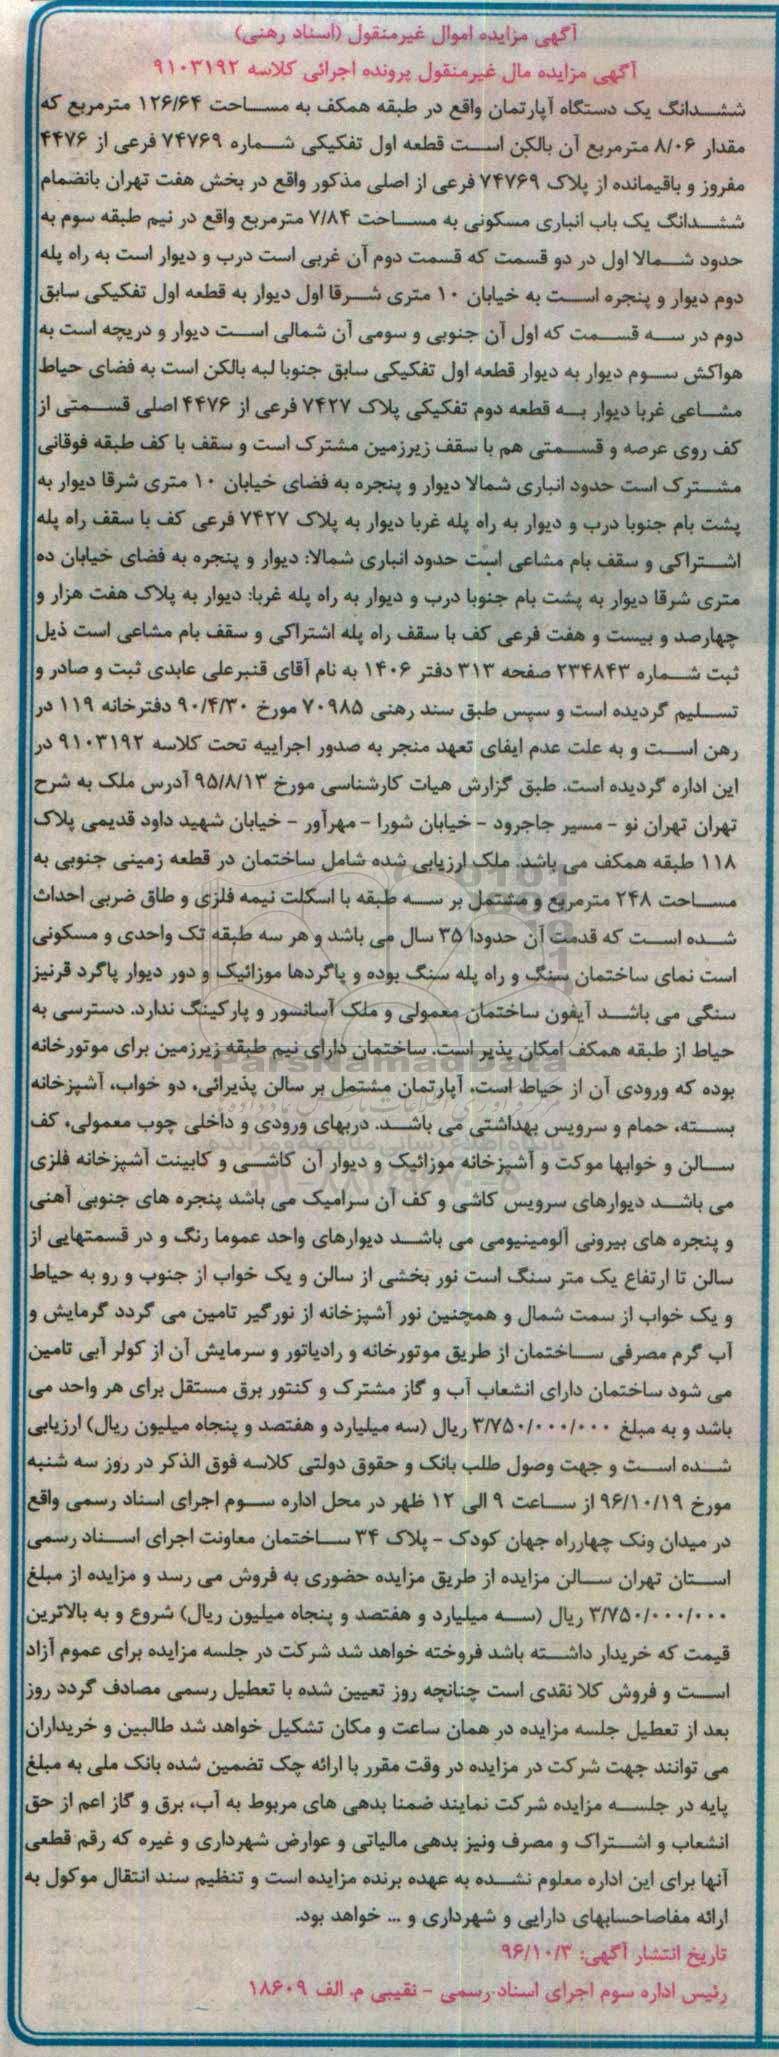 آگهی مزایده اموال غیرمنقول (اسناد رهنی)
آگهی مزایده مال غیرمنقول پرونده اجرائی کلاسه ۹۱۰۳۱۹۲
ششدانگ یک دستگاه آپارتمان واقع در طبقه همکف به مساحت ۱۲۶/۶۴ مترمربع که
مقدار ۸/۰۶ مترمربع آن بالکن است قطعه اول تفکیکی شماره ۷۴۷۶۹ فرعی از ۴۴۷۶
مفروز و باقیمانده از پلاک ۷۴۷۶۹ فرعی از اصلی مذکور واقع در بخش هفت تهران بانضمام
ششدانگ یک باب انباری مسکونی به مساحت ۷/۸۴ مترمربع واقع در نیم طبقه سوم به
حدود شمالا اول در دو قسمت که قسمت دوم آن غربی است درب و دیوار است به راه پله
دوم دیوار و پنجره است به خیابان ۱۰ متری شرقا اول دیوار به قطعه اول تفکیکی سابق
دوم در سه قسمت که اول آن جنوبی و سومی آن شمالی است دیوار و دریچه است به
هواکش سوم دیوار به دیوار قطعه اول تفکیکی سابق جنوبا لبه بالکن است به فضای حیاط
مشاعی غربا دیوار به قطعه دوم تفکیکی پلاک ۷۴۲۷ فرعی از ۴۴۷۶ اصلی قسمتی از
کف روی عرصه و قسمتی هم با سقف زیرزمین مشترک است و سقف با کف طبقه فوقانی
مشترک است حدود انباری شمالا دیوار و پنجره به فضای خیابان ۱۰ متری شرقا دیوار به
پشت بام جنوبا درب و دیوار به راه پله غربا دیوار به پلاک ۷۴۲۷ فرعی کف با سقف راه پله
اشتراکی و سقف بام مشاعی است حدود انباری شمالا: دیوار و پنجره به فضای خیابان ده
متری شرقا دیوار به پشت بام جنوبا درب و دیوار به راه پله غربا: دیوار به پلاک هفت هزار و
چهارصد و بیست و هفت فرعی کف با سقف راه پله اشتراکی و سقف بام مشاعی است ذیل
ثبت شماره ۲۳۴۸۴۳ صفحه ۳۱۳ دفتر ۱۴۰۶ به نام آقای قنبرعلی عابدی ثبت و صادر و
تسلیم گردیده است و سپس طبق سند رهنی ۷۰۹۸۵ مورخ ۹۰/۴/۳۰ دفترخانه ۱۱۹ در
رهن است و به علت عدم ایفای تعهد منجر به صدور اجراییه تحت کلاسه ۹۱۰۳۱۹۲ در
این اداره گردیده است. طبق گزارش هیات کارشناسی مورخ ۹۵/۸/۱۳ آدرس ملک به شرح
تهران تهران نو - مسیر جاجرود - خیابان شورا - مهرآور - خیابان شهید داود قدیمی پلاک
۱۱۸ طبقه همکف می باشد. ملک ارزیابی شده شامل ساختمان در قطعه زمینی جنوبی به
مساحت ۲۴۸ مترمربع و مشتمل بر سه طبقه با اسکلت نیمه فلزی و طاق ضربی احداث
شده است که قدمت آن حدودا ۳۵ سال می باشد و هر سه طبقه تک واحدی و مسکونی
است نمای ساختمان سنگ و راه پله سنگ بوده و پاگردها موزائیک و دور دیوار پاگرد قرنیز
سنگی می باشد آیفون ساختمان معمولی و ملک آسانسور و پارکینگ ندارد. دسترسی به
حیاط از طبقه همکف امکان پذیر است. ساختمان دارای نیم طبقه زیرزمین برای موتورخانه
بوده که ورودی آن از حیاط است. آپارتمان مشتمل بر سالن پذیرائی، دو خواب، آشپزخانه
بسته، حمام و سرویس بهداشتی می باشد. دربهای ورودی و داخلی چوب معمولی، کف
سالن و خوابها موکت و آشپزخانه موزائیک و دیوار آن کاشی و کابینت آشپزخانه فلزی
می باشد دیوارهای سرویس کاشی و کف آن سرامیک می باشد پنجره های جنوبی آهنی
و پنجره های بیرونی آلومینیومی می باشد دیوارهای واحد عموما رنگ و در قسمتهایی از
سالن تا ارتفاع یک متر سنگ است نور بخشی از سالن و یک خواب از جنوب و رو به حیاط
و یک خواب از سمت شمال و همچنین نور آشپزخانه از نورگیر تامین می گردد گرمایش و
آب گرم مصرفی ساختمان از طریق موتورخانه و رادیاتور و سرمایش آن از کولر آبی تامین
می شود ساختمان دارای انشعاب آب و گاز مشترک و کنتور برق مستقل برای هر واحد می
باشد و به مبلغ ۳/۷۵۰/۰۰۰/۰۰۰ ریال (سه میلیارد و هفتصد و پنجاه میلیون ریال) ارزیابی
شده است و جهت وصول طلب بانک و حقوق دولتی کلاسه فوق الذکر در روز سه شنبه
مورخ ۹۶/۱۰/۱۹ از ساعت ۹ الی ۱۲ ظهر در محل اداره سوم اجرای اسناد رسمی واقع
در میدان ونک چهارراه جهان کودک - پلاک ۳۴ ساختمان معاونت اجرای اسناد رسمی
استان تهران سالن مزایده از طریق مزایده حضوری به فروش می رسد و مزایده از مبلغ
۳/۷۵۰/۰۰۰/۰۰۰ ریال (سه میلیارد و هفتصد و پنجاه میلیون ریال) شروع و به بالاترین
قیمت که خریدار داشته باشد فروخته خواهد شد شرکت در جلسه مزایده برای عموم آزاد
است و فروش کلا نقدی است چنانچه روز تعیین شده با تعطیل رسمی مصادف گردد روز
بعد از تعطیل جلسه مزایده در همان ساعت و مکان تشکیل خواهد شد طالبین و خریداران
می توانند جهت شرکت در مزایده در وقت مقرر با ارائه چک تضمین شده بانک ملی به مبلغ
پایه در جلسه مزایده شرکت نمایند ضمنا بدهی های مربوط به آب، برق و گاز اعم از حق
انشعاب و اشتراک و مصرف ونیز بدهی مالیاتی و عوارض شهرداری و غیره که رقم قطعی
آنها برای این اداره معلوم نشده به عهده برنده مزایده است و تنظیم سند انتقال موکول به
ارائه مفاصاحسابهای دارایی و شهرداری و ... خواهد بود.
تاریخ انتشار آگهی: ۹۶/۱۰/۳
رئیس اداره سوم اجرای اسناد رسمی - نقیبی م. الف ۱۸۶۰۹
ParsNamadData